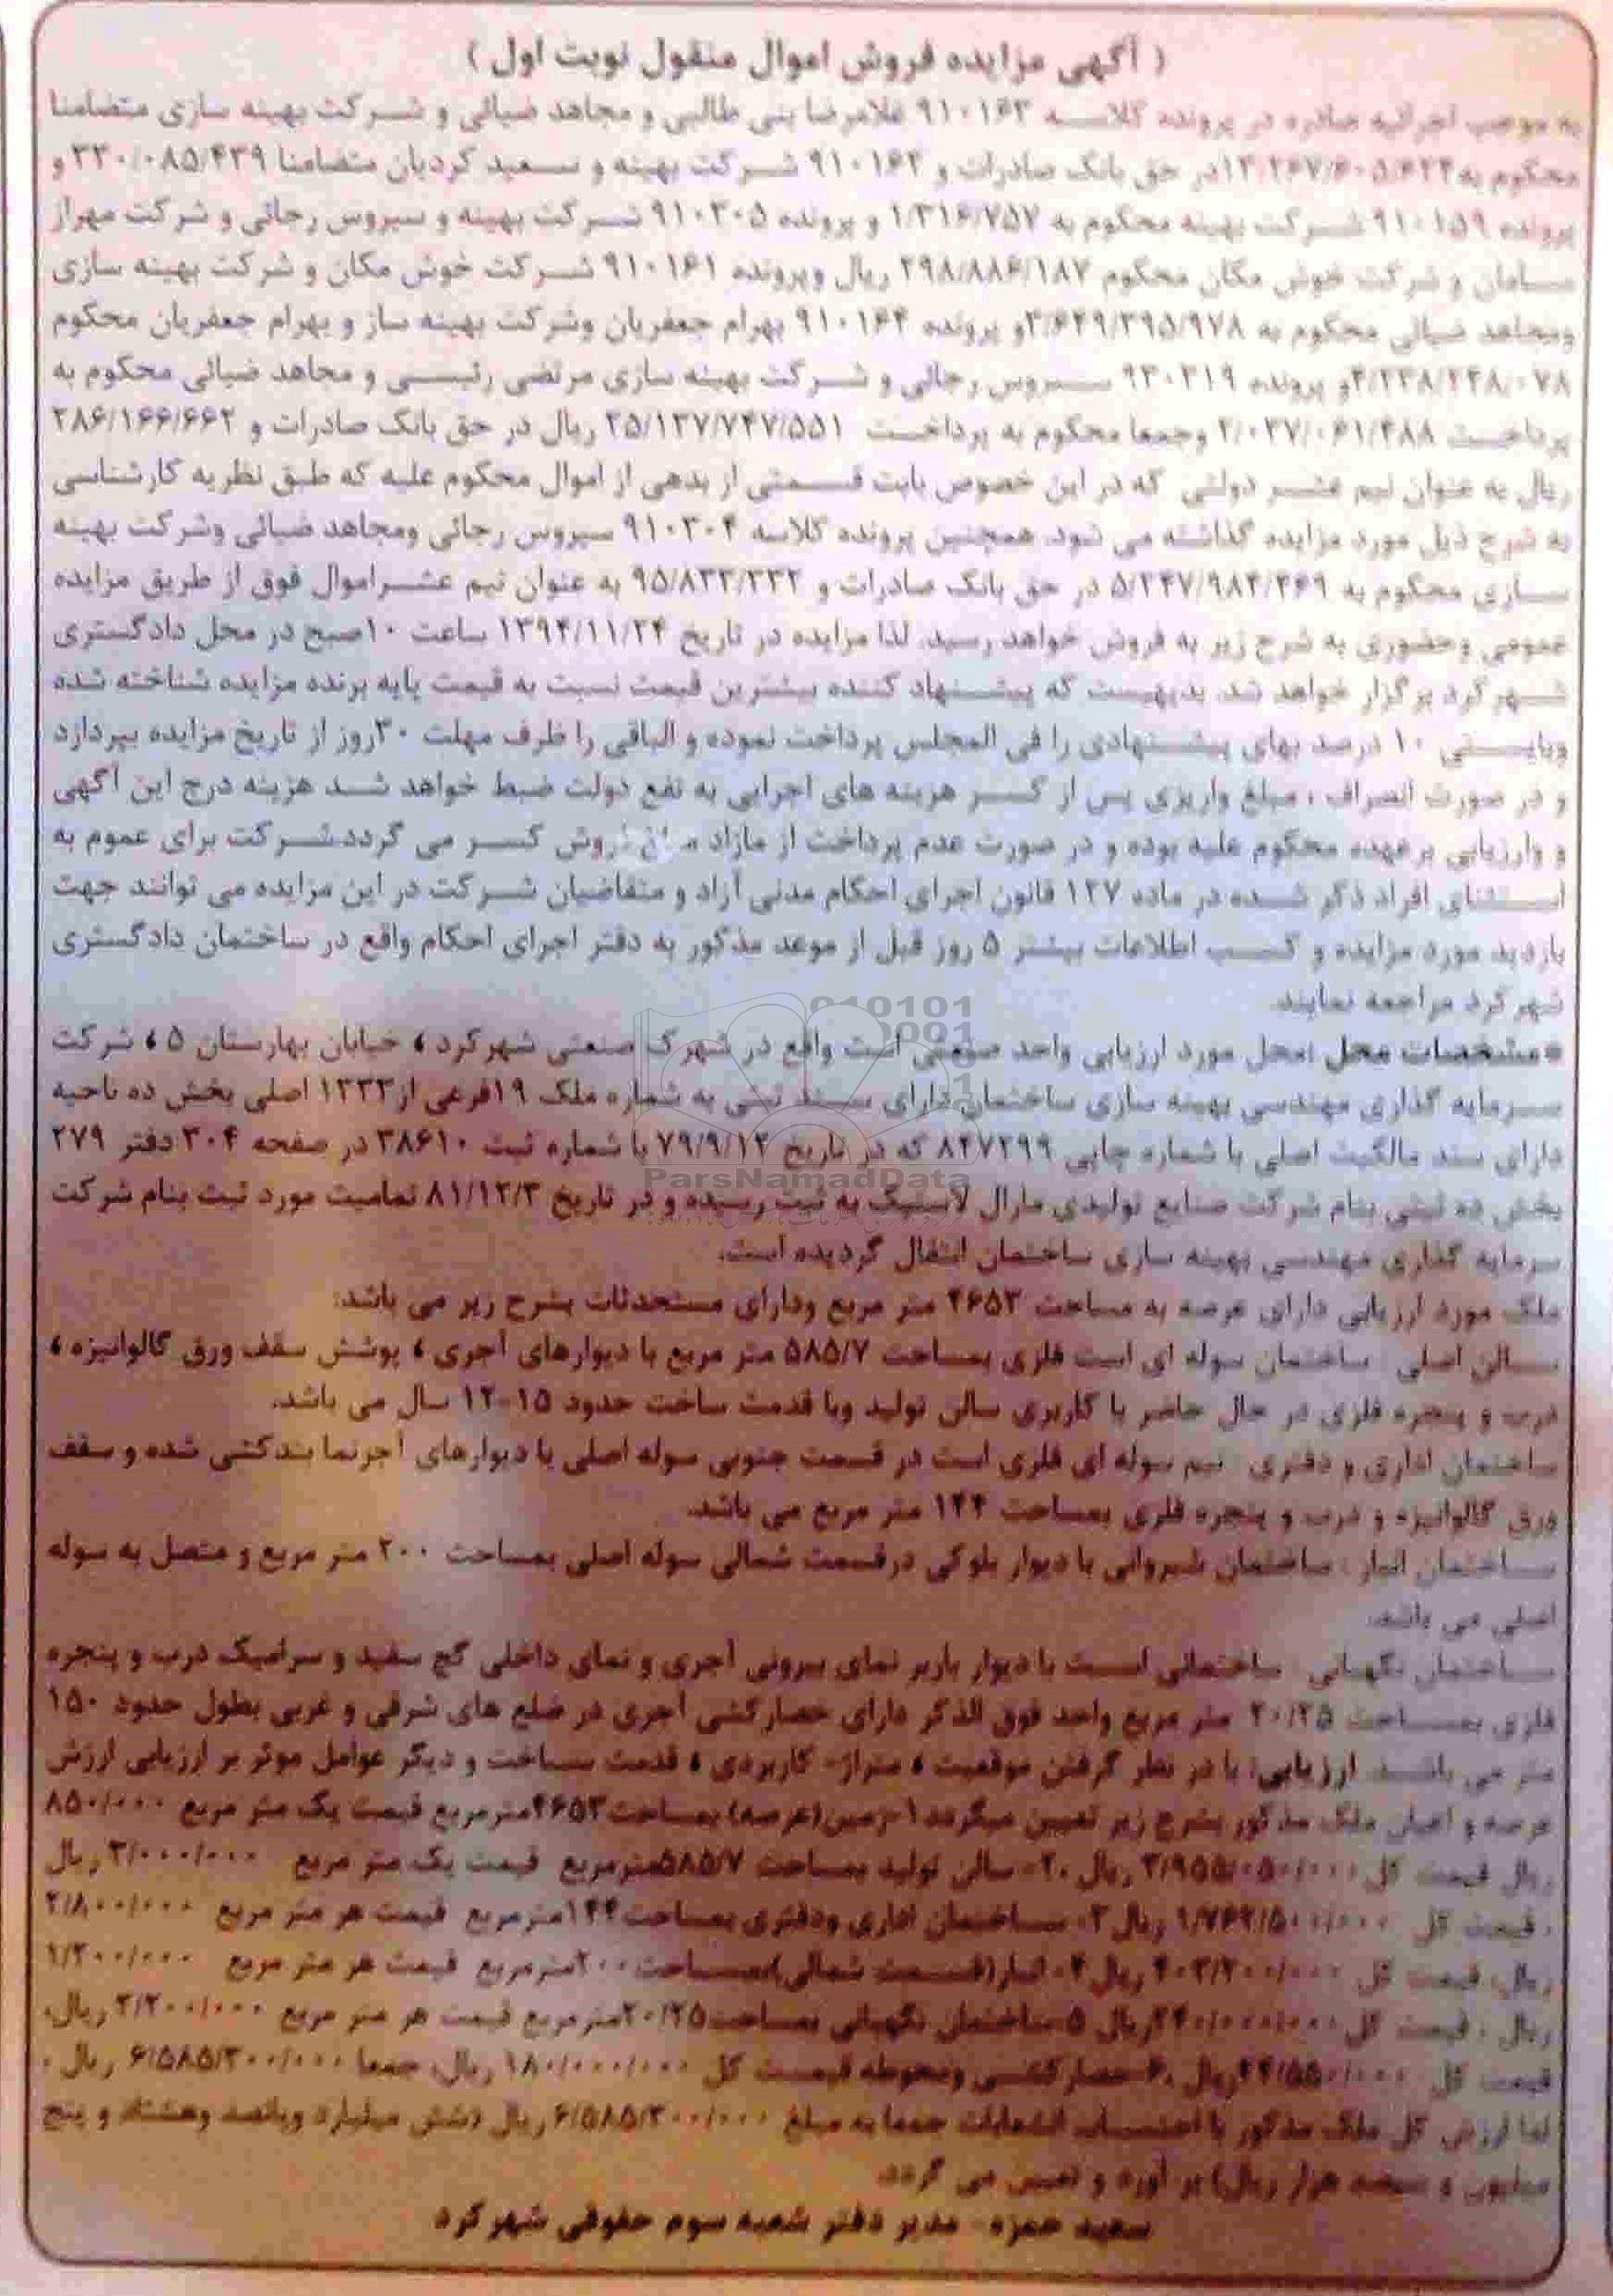 ( آگهی مزایده فروش اموال منقول نوبت اول )
به موجب اجرائیه صادره در پرونده کلاسه ۹۱۰۱۶۳ غلامرضا بنی طالبی و مجاهد ضیائی و شرکت بهینه سازی متضامنا
محکوم به در حق بانک صادرات و ۹۱۰۱۶۲ شرکت بهینه و سعید کردیان متضامنا و
پرونده ۹۱۰۱۵۹ شرکت بهینه محکوم به ۱/۳۱۶/۷۵۷ و پرونده ۹۱۰۳۰۵ شرکت بهینه و سیروس رجائی و شرکت مهراز
سامان و شرکت خوش مکان محکوم ۲۹۸/۸۸۶/۱۸۷ ریال وپرونده ۹۱۰۱۶۱ شرکت خوش مکان و شرکت بهینه سازی
ومجاهد ضیائی محکوم به ۳/۶۴۹/۳۹۵/۹۷۸و پرونده ۹۱۰۱۶۴ بهرام جعفریان وشرکت بهینه ساز و بهرام جعفریان محکوم
و پرونده ۹۳۰۳۱۹ سیروس رجائی و شرکت بهینه سازی مرتضی رئیسی و مجاهد ضیائی محکوم به
پرداخت وجمعا محکوم به پرداخت ۲۵/۱۳۷/۷۴۷/۵۵۱ ریال در حق بانک صادرات و ۲۸۶/۱۶۶/۶۶۲
ریال به عنوان نیم عشر دولتی که در این خصوص بابت قسمتی از بدهی از اموال محکوم علیه که طبق نظریه کارشناسی
به شرح ذیل مورد مزایده گذاشته می شود. همچنین پرونده کلاسه ۹۱۰۳۰۴ سیروس رجائی ومجاهد ضیائی وشرکت بهینه
سازی محکوم به در حق بانک صادرات و ۹۵/۸۳۳/۳۳۲ به عنوان نیم عشراموال فوق از طریق مزایده
عمومی وحضوری به شرح زیر به فروش خواهد رسید. لذا مزایده در تاریخ ۱۳۹۴/۱۱/۲۴ ساعت ۱۰صبح در محل دادگستری
شهرکرد برگزار خواهد شد. بدیهیست که پیشنهاد کننده بیشترین قیمت نسبت به قیمت پایه برنده مزایده شناخته شده
وبایستی ۱۰ درصد بهای پیشنهادی را فی المجلس پرداخت نموده و الباقی را ظرف مهلت ۳۰روز از تاریخ مزایده بپردازد
و در صورت انصراف ، مبلغ واریزی پس از کسر هزینه های اجرایی به نفع دولت ضبط خواهد شد هزینه درج این آگهی
و وارزیابی برعهده محکوم علیه بوده و در صورت عدم پرداخت از مازاد فروش کسر می گردد.شرکت برای عموم به
استثنای افراد ذکر شده در ماده ۱۲۷ قانون اجرای احکام مدنی آزاد و متقاضیان شرکت در این مزایده می توانند جهت
بازدید مورد مزایده و کسب اطلاعات بیشتر ۵ روز قبل از موعد مذکور به دفتر اجرای احکام واقع در ساختمان دادگستری
شهرکرد مراجعه نمایند.
*مشخصات محل :محل مورد ارزیابی واحد صنعتی است واقع در شهرک صنعتی شهرکرد ، خیابان بهارستان ۵ ، شرکت
سرمایه گذاری مهندسی بهینه سازی ساختمان دارای سند ثبتی به شماره ملک ۱۹فرعی از۱۳۳۳ اصلی بخش ده ناحیه
دارای سند مالکیت اصلی با شماره چاپی ۸۲۷۲۹۹ که در تاریخ ۷۹/۹/۱۲ با شماره ثبت ۳۸۶۱۰ در صفحه ۳۰۴ دفتر ۲۷۹
بخش ده ثبتی بنام شرکت صنایع تولیدی مارال لاستیک به ثبت رسیده و در تاریخ ۸۱/۱۲/۳ تمامیت مورد ثبت بنام شرکت
سرمایه گذاری مهندسی بهینه سازی ساختمان انتقال گردیده است.
ملک مورد ارزیابی دارای عرصه به مساحت ۴۶۵۳ متر مربع ودارای مستحدثات بشرح زیر می باشد:
سالن اصلی ساختمان سوله ای است فلزی بمساحت ۵۸۵/۷ متر مربع با دیوارهای آجری ، پوشش سقف ورق گالوانیزه ،
درب و پنجره فلزی در حال حاضر با کاربری سالن تولید وبا قدمت ساخت حدود ۱۵-۱۲ سال می باشد.
ساختمان اداری و دفتری نیم سوله ای فلزی است در قسمت جنوبی سوله اصلی با دیوارهای آجرنما بندکشی شده و سقف
ورق گالوانیزه و درب و پنجره فلزی بمساحت ۱۴۴ متر مربع می باشد.
ساختمان انبار : ساختمان شیروانی با دیوار بلوکی درقسمت شمالی سوله اصلی بمساحت ۲۰۰ متر مربع و متصل به سوله
اصلی می باشد.
ساختمان نگهبانی ساختمانی است با دیوار باربر نمای بیرونی آجری و نمای داخلی گچ سفید و سرامیک درب و پنجره
فلزی بمساحت ۲۰/۲۵ متر مربع واحد فوق الذکر دارای حصارکشی آجری در ضلع های شرقی و غربی بطول حدود ۱۵۰
متر می باشد. ارزیابی: با در نظر گرفتن موقعیت ، متراژ- کاربردی ، قدمت ساخت و دیگر عوامل موثر بر ارزیابی ارزش
عرصه و اعیان ملک مذکور بشرح زیر تعیین میگردد ۱-زمین(عرصه) بمساحت۴۶۵۳مترمربع قیمت یک متر مربع ۸۵۰/۰۰۰
ریال قیمت کل ۳/۹۵۵/۰۵۰/۰۰۰ ریال ۲۰- سالن تولید بمساحت ۵۸۵/۷مترمربع قیمت یک متر مربع ۳/۰۰۰/۰۰۰ ریال
، قیمت کل ریال ۳- ساختمان اداری ودفتری بمساحت۱۴۴مترمربع قیمت هر متر مربع ۲/۸۰۰/۰۰۰
ریال، قیمت کل ۴۰۳/۲۰۰/۰۰۰ ریال ۴- انبار(قسمت شمالی)بمساحت۲۰۰مترمربع قیمت هر متر مربع ۱/۲۰۰/۰۰۰
ریال ، قیمت کل ۲۴۰/۰۰۰/۰۰۰ریال ۵-ساختمان نگهبانی بمساحت۲۰/۲۵مترمربع قیمت هر متر مربع ۲/۲۰۰/۰۰۰ ریال،
قیمت کل ۴۴/۵۵۰/۰۰۰ریال ۶-حصارکشی ومحوطه قیمت کل ۱۸۰/۰۰۰/۰۰۰ ریال، جمعا ۶/۵۸۵/۳۰۰/۰۰۰ ریال .
لذا ارزش کل ملک مذکور با احتساب انشعابات جمعا به مبلغ ۶/۵۸۵/۳۰۰/۰۰۰ ریال (شش میلیارد وپانصد وهشتاد و پنج
میلیون و سیصد هزار ریال) بر آورد و تعیین می گردد.
سعید حمزه- مدیر دفتر شعبه سوم حقوقی شهرکرد
ParsNamadData